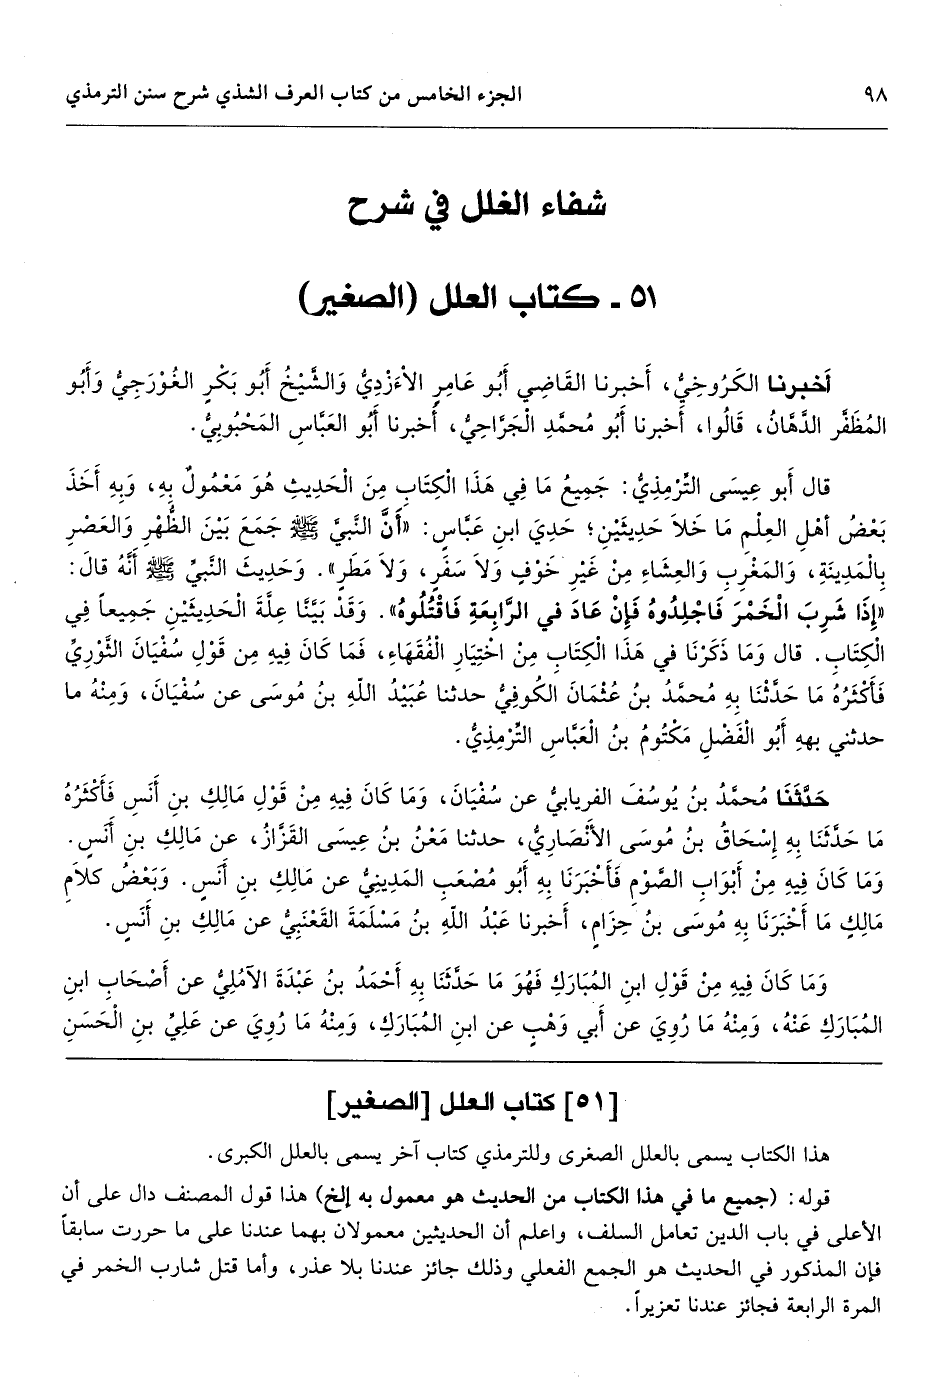 ٩٨ الجزء الخامس من كتاب العرف الشذي شرح سنن الترمذي
شفاء الغلل في شرح
٥١ ـ كتاب العلل (الصغير)
أَخبرنا الكَرُوخِيُّ، أَخبرنا القَاضِي أَبُو عَامِرٍ الأَءَزْدِيُّ وَالشَّيْخُ أَبُو بَكْرٍ الغُورَجِيُّ وَأَبُو
المُظَفَّر الدَّهَّانُ، قَالُوا، أَخبرنا أَبُو مُحمَّد الْجَرَّاحِيُّ، أَخبرنا أَبُو العَبَّاسِ المَحْبُوبِيُّ.
قال أَبو عِيسَى التِّرْمِذِيُّ: جَمِيعُ مَا فِي هَذَا الْكِتَابِ مِنَ الْحَدِيثِ هُوَ مَعْمُولٌ بِهِ، وَبِهِ أَخَذَ
بَعْضُ أَهْلِ العِلْمِ مَا خَلاَ حَدِيثَيْنِ؛ حَدِيَ ابنِ عَبَّاسٍ: «أَنَّ النَّبِيَّ ﷺ جَمَعَ بَيْنَ الظُّهْرِ وَالعَصْرِ
بِالْمَدِينَةِ، وَالمَغْرِبِ وَالعِشَاءِ مِنْ غَيْرِ خَوْفٍ وَلاَ سَفَرٍ، وَلاَ مَطَرٍ». وَحَدِيثَ النَّبِيِّ ﷺ أَنَّهُ قالَ:
«إِذَا شَرِبَ الْخَمْرَ فَاجْلِدُوهُ فَإِنْ عَادَ في الرَّابِعَةِ فَاقْتُلُوهُ». وَقَدْ بَيَّنَّا عِلَّةَ الْحَدِيثَيْنِ جَمِيعاً فِي
الْكِتَابِ. قال وَمَا ذَكَرْنَا في هَذَا الْكِتَابِ مِنْ اخْتِيَارِ الْفُقَهَاءِ، فَمَا كَانَ فِيهِ مِن قَوْلِ سُفْيَانَ الثَّوْرِيِّ
فَأَكْثَرُهُ مَا حَدَّثْنَا بِهِ مُحمَّدُ بنُ عُثْمَانَ الكُوفِيُّ حدثنا عُبَيْدُ اللّهِ بنُ مُوسَى عن سُفْيَانَ، وَمِنْهُ ما
حدثني بههِ أَبُو الْفَضْلِ مَكْتُومُ بنُ الْعَبَّاسِ التِّرْمِذِيُّ.
حَدَّثَنَا مُحمَّدُ بنُ يُوسُفَ الفريابيُّ عن سُفْيَانَ، وَمَا كَانَ فِيهِ مِنْ قَوْلِ مَالِكِ بنِ أَنَسٍ فَأَكْثَرُهُ
مَا حَدَّثَنَا بِهِ إِسْحَاقُ بنُ مُوسَى الأَنْصَارِيُّ، حدثنا مَعْنُ بنُ عِيسَى القَزَّازُ، عن مَالِكِ بنِ أَنَسٍ.
وَمَا كَانَ فِيهِ مِنْ أَبْوَابِ الصَّوْمِ فَأَخْبَرَنَا بِهِ أَبُو مُصْعَبٍ المَدِينِيُّ عن مَالِكِ بنِ أَنَسٍ. وَبَعْضُ كلاَمِ
مَالِكِ مَا أَخْبَرَنَا بِهِ مُوسَى بنُ حِزَامٍ، أَخبرنا عَبْدُ اللّهِ بنُ مَسْلَمَةَ القَعْنَبِيُّ عن مَالِكِ بنِ أَنَسٍ.
وَمَا كَانَ فِيهِ مِنْ قَوْلِ ابنِ المُبَارَكِ فَهُوَ مَا حَدَّثَنَا بِهِ أَحْمَدُ بنُ عَبْدَةَ الآمُلِيُّ عن أَصْحَابِ ابنِ
المُبَارَكِ عَنْهُ، وَمِنْهُ مَا رُوِيَ عن أَبي وَهْبٍ عن ابنِ المُبَارَكِ، وَمِنْهُ مَا رُوِيَ عن عَلِيِّ بنِ الْحَسَنِ
[٥١] كتاب العلل [الصغير]
هذا الكتاب يسمى بالعلل الصغرى وللترمذي كتاب آخر يسمى بالعلل الكبرى.
قوله: (جميع ما في هذا الكتاب من الحديث هو معمول به إلخ) هذا قول المصنف دال على أن
الأعلى في باب الدين تعامل السلف، واعلم أن الحديثين معمولان بهما عندنا على ما حررت سابقاً
فإن المذكور في الحديث هو الجمع الفعلي وذلك جائز عندنا بلا عذر، وأما قتل شارب الخمر في
المرة الرابعة فجائز عندنا تعزيراً.